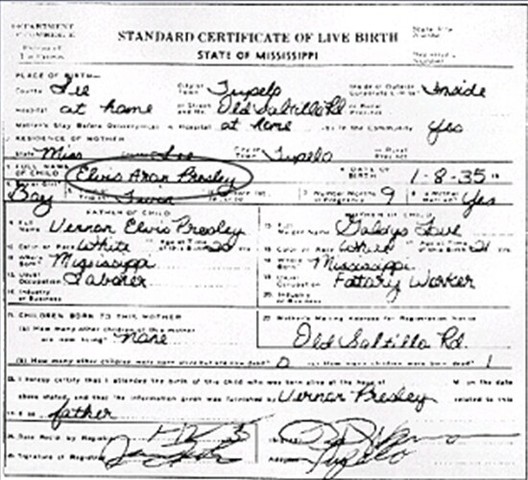 DEPARTMENT
STANDARD CERTIFICATE OF LIVE BIRTH
STATE OF MISSISSIPPI
PLACE OF BIRTH—
County Lee City or Town Tupelo Inside
Hospital at home or Street and No. Old Saltillo Rd
Mother's Stay Before Delivery: Hospital at home In the Community Yes
RESIDENCE OF MOTHER
State Miss Lee City or Town Tupelo
FULL NAME OF CHILD Elvis Aron Presley DATE OF BIRTH 1-8-35
Boy Twin Number Months of Pregnancy 9 Yes
FATHER OF CHILD MOTHER OF CHILD
Name Vernon Elvis Presley Name Gladys Love
Color or Race White Age at Time of this Birth Color or Race White Age at Time of this Birth 21
Mississippi Mississippi
Usual Occupation Laborer Usual Occupation Factory Worker
Industry or Business Industry or Business
CHILDREN BORN TO THIS MOTHER Mother's Mailing Address for Registration Notice
(a) How many other children of this mother are now living? none Old Saltillo Rd.
(b) How many other children were born alive but are now dead? 0 (c) How many children were born dead? 1
I hereby certify that I attended the birth of this child who was born alive at the hour of M on the date
above stated, and that the information given was furnished by Vernon Presley related to this
father
Date Rec'd by Registrar
Signature of Registrar Tupelo